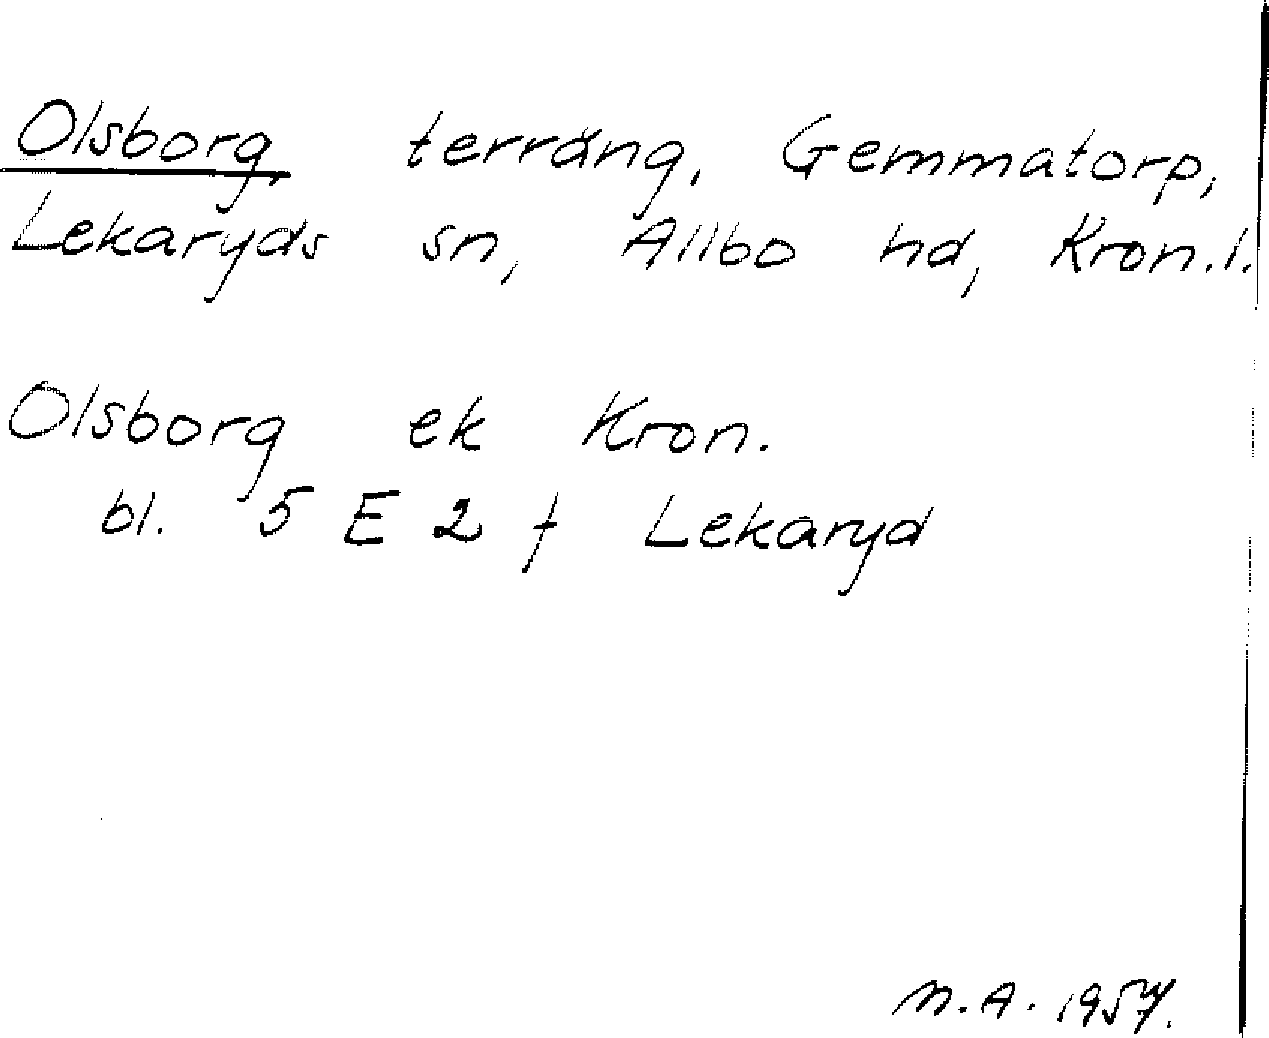 Olsborg, terräng, Gemmatorp,
Lekaryds sn, Allbo hd, Kron.l.
Olsborg ek Kron.
bl. 5 E 2 f Lekaryd
N.A. 1957.